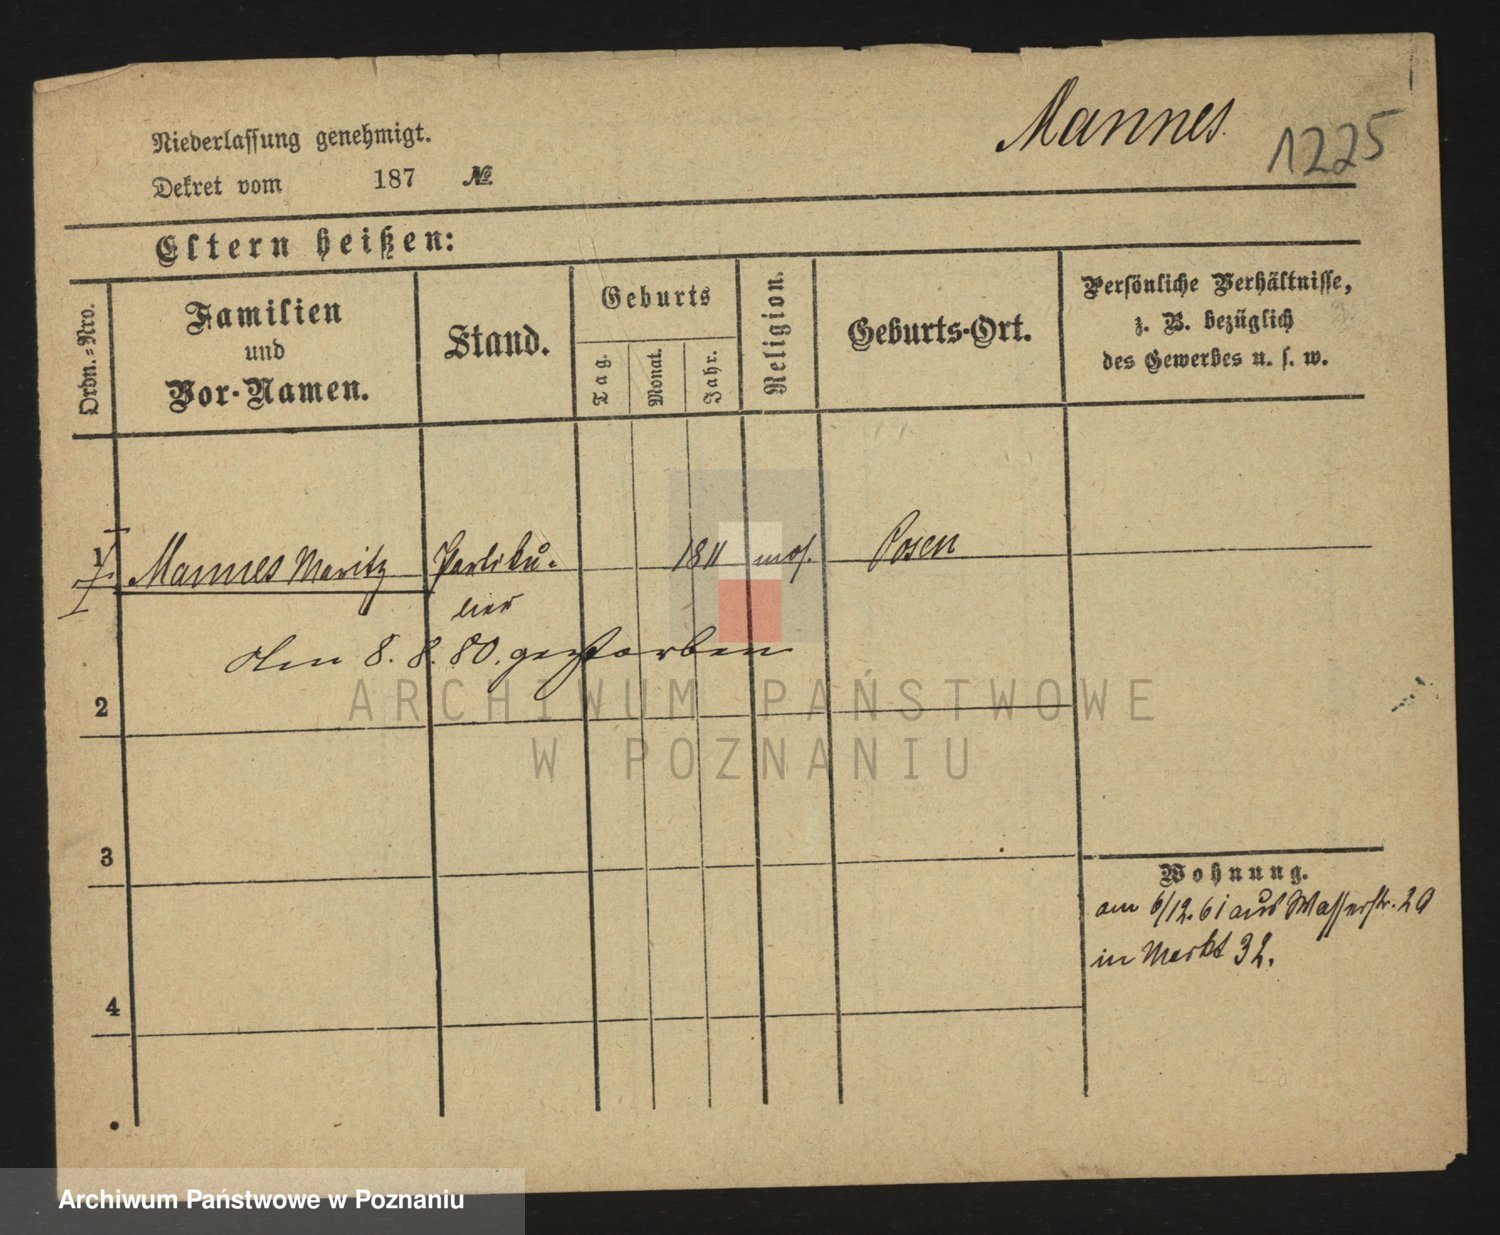 Mannes.
1225
Niederlassung genehmigt.
Dekret vom 187 №
Eltern heißen:
Ordn.-Nro.
Familien
und
Vor-Namen.
Stand.
Geburts
Tag.
Monat.
Jahr.
Religion.
Geburts-Ort.
Persönliche Verhältnisse,
z. B. bezüglich
des Gewerbes u. s. w.
1 Mannes Moritz Partiku- 1811 mos. Posen
lier
den 8. 8. 80. gestorben
2
ARCHIWUM PAŃSTWOWE
W POZNANIU
3
Wohnung.
am 6/12. 61 aus Wasserstr. 29
in Markt 32.
4
Archiwum Państwowe w Poznaniu